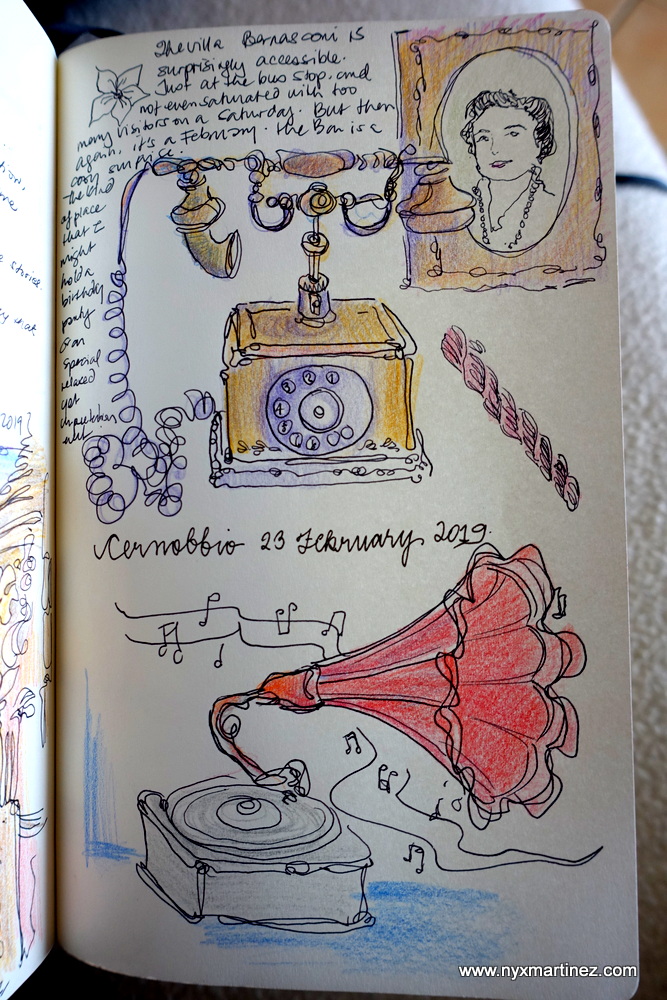 The villa Bernasconi is
surprisingly accessible.
Just at the bus stop, and
not even saturated with too
many visitors on a Saturday. But then
again, it's a February. The Bar is a
cosy surprise.
The kind
of place
that I
might
hold a
birthday
party
or an
special
relaxed
yet
Cernobbio 23 February 2019.
2019
www.nyxmartinez.com